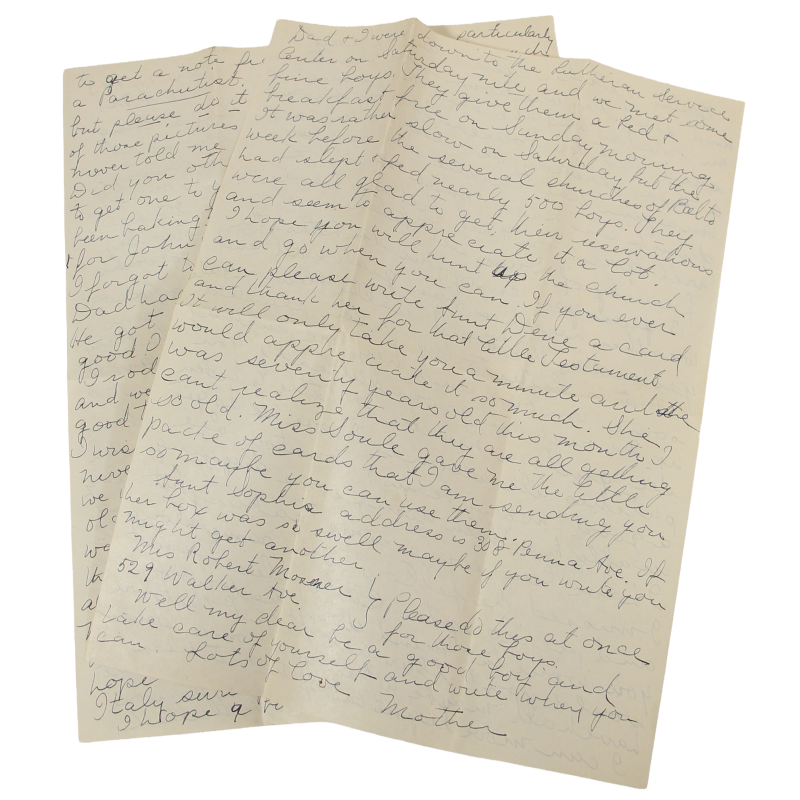 to get a note
a Parachutist.
but please do it
of those pictures
hover told me
Did you oth
to get one to y
been baking
for John
I forgot t
Dad ha
He got
good I
I rod
and we
good t
I was
neve
we
ol
wa
th
a
hope
Italy surr
I hope
particularly
Dad & I were down to the Lutheran Service
Center on Saturday nite and we met some
fine boys. They give them a bed &
breakfast free on Sunday morning.
It was rather slow on Saturday but the
week before the several churches of Balto
had slept & fed nearly 500 boys. They
were all glad to get their reservations
and seem to appreciate it a lot.
I hope you will hunt up the church
and go when you can. If you ever
can please write Aunt Dene a card
and thank her for that little Testament
It will only take you a minute and she
would appreciate it so much. She
was seventy years old this month I
cant realize that they are all getting
so old. Miss Soule gave me the little
pack of cards that I am sending you
so maybe you can use them.
Aunt Sophia address is 308 Penna Ave. If
her box was so swell maybe if you write you
might get another
Mrs Robert Mosner
529 Walker Ave.
Please do this at once
for those boys.
Well my dear be a good boy and
take care of yourself and write when you
can. Lots of Love
Mother